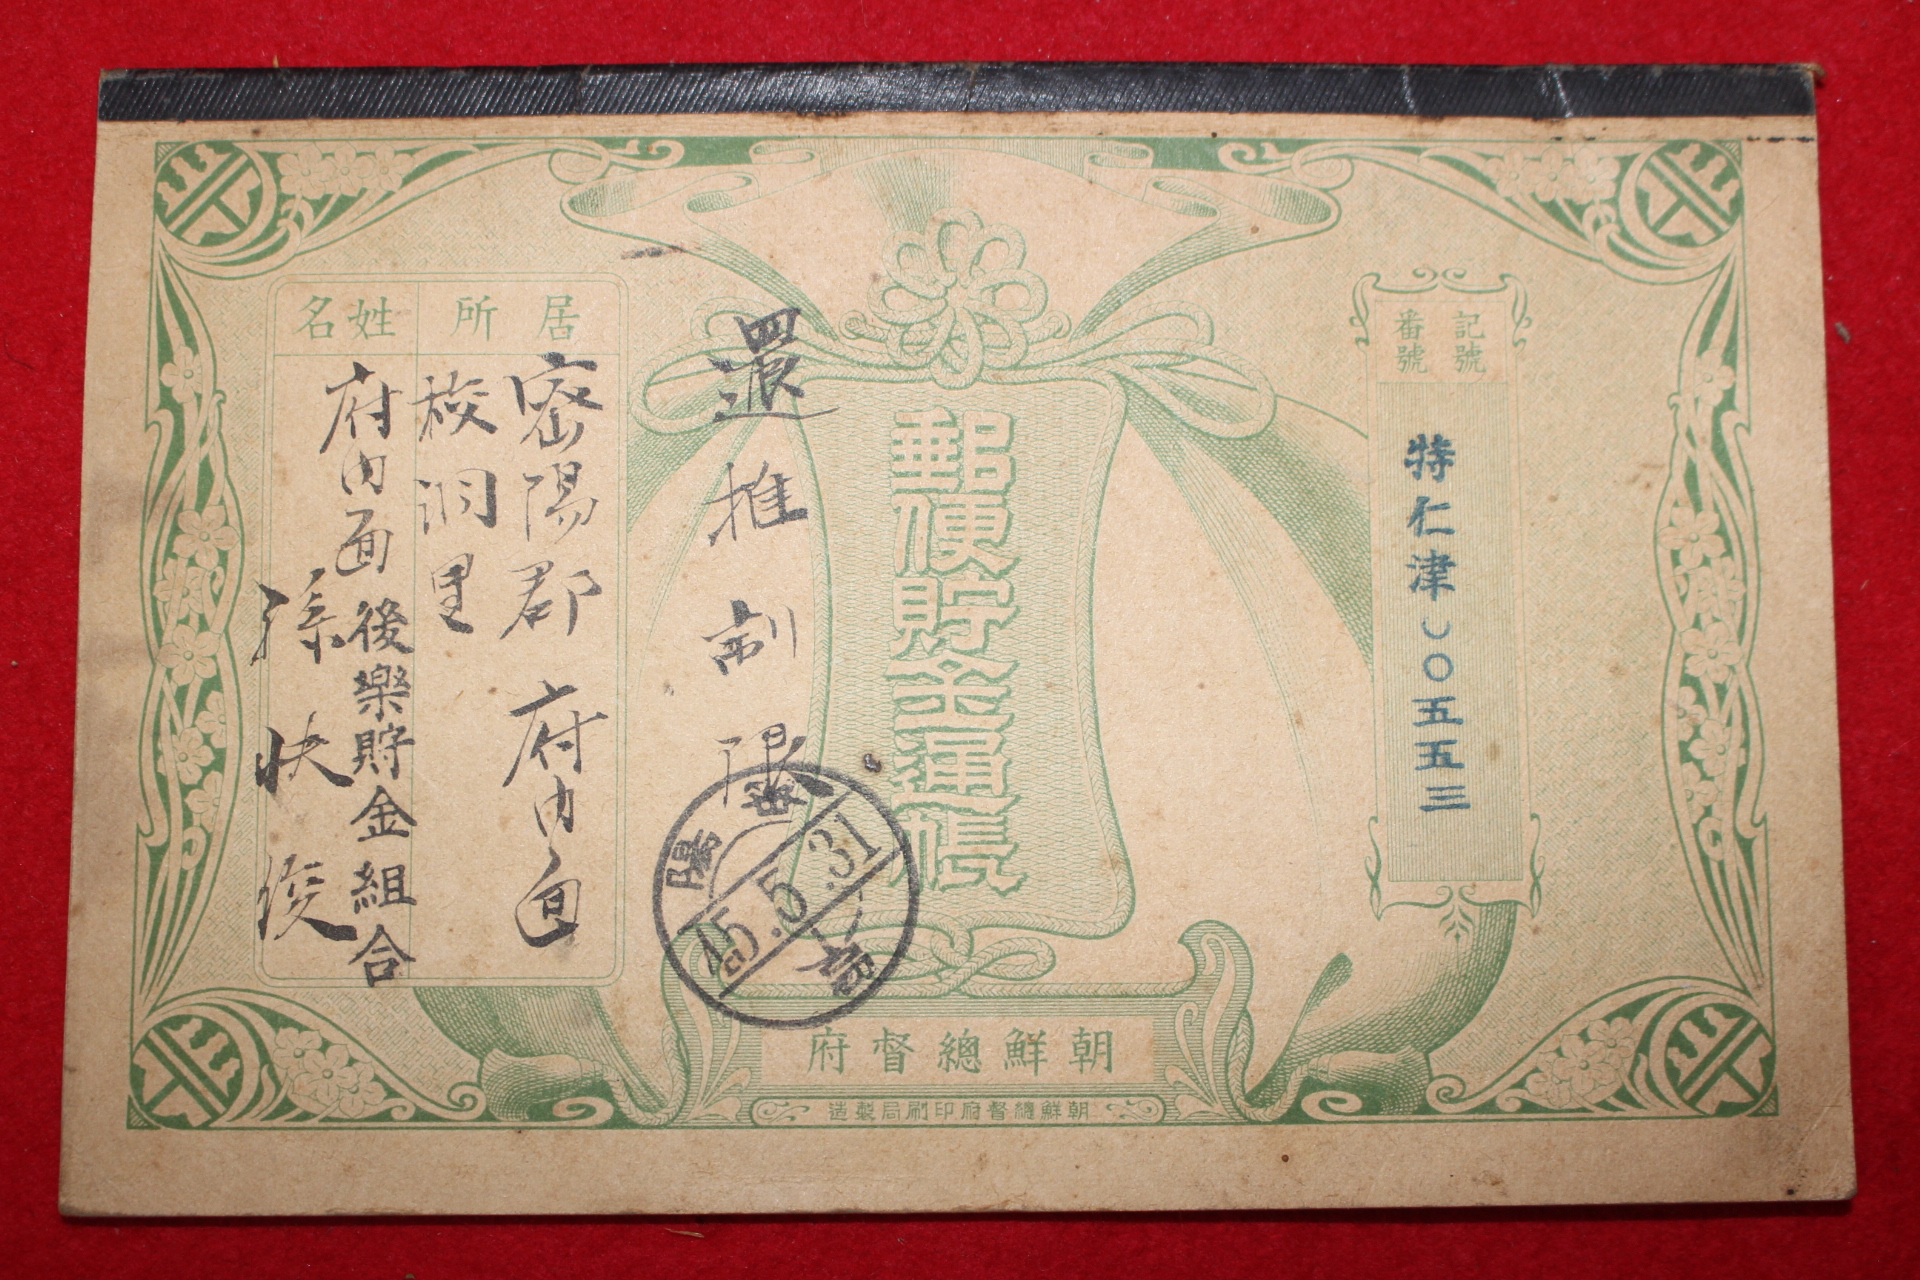 記號
番號
特仁津〇〇五五三
郵便貯金通帳
還推制限
居所
密陽郡府内面
校洞里
姓名
府内面後樂貯金組合
孫快俊
密陽
15.5.31
朝鮮總督府
朝鮮總督府印刷局製造